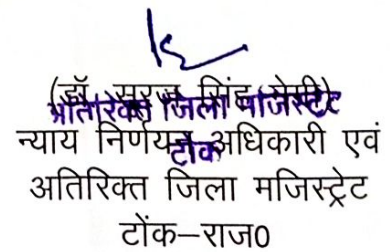 (डॉ सूरज सिंह नेगी)
अतिरिक्त जिला मजिस्ट्रेट
टोंक
न्याय निर्णयन अधिकारी एवं
अतिरिक्त जिला मजिस्ट्रेट
टोंक–राज0